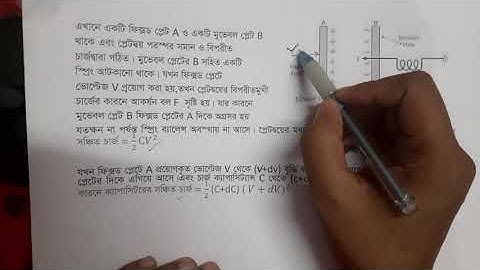 এখানে একটি ফিক্সড প্লেট A ও একটি মুভেবল প্লেট B
থাকে এবং প্লেটদ্বয় পরস্পর সমান ও বিপরীত
চার্জদ্বারা গঠিত। মুভেবল প্লেটের B সহিত একটি
স্প্রিং আটকানো থাকে। যখন ফিক্সড প্লেটে
ভোল্টেজ V প্রয়োগ করা হয়,তখন প্লেটদ্বয়ের বিপরীতমুখী
চার্জের কারনে আকর্সন বল F সৃষ্টি হয়। যার কারনে
মুভেবল প্লেট B ফিক্সড প্লেটের A দিকে অগ্রসর হয়
যতক্ষন না পর্যন্ত স্প্রিং ব্যালেন্স অবস্থায় না আসে। প্লেটদ্বয়ের মধ্যে
সঞ্চিত চার্জ =½CV²
যখন ফিক্সড প্লেটে A প্রয়োগকৃত ভোল্টেজ V থেকে (V+dv) বৃদ্ধি
প্লেটের দিকে এগিয়ে আসে এবং চার্জ ক্যাপাসিট্যান্স C থেকে
কারনে ক্যাপাসিটরের সঞ্চিত চার্জ =½(C+dC)(V + dV)²
A
B
F